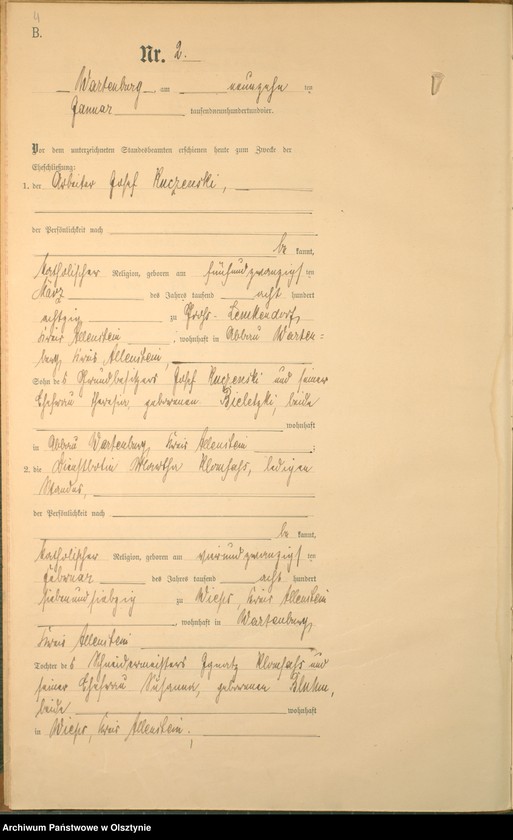 4
B.
Nr. 2.
Wartenburg, am neunzehn ten
Januar tausendneunhundertundvier.
Vor dem unterzeichneten Standesbeamten erschienen heute zum Zwecke der
Eheschließung:
1. der Arbeiter Josef Kuczenski,
der Persönlichkeit nach
be kannt,
katholischer Religion, geboren am fünfundzwanzigs ten
März des Jahres tausend acht hundert
achtzig zu Groß-Lemkendorf,
Kreis Allenstein, wohnhaft in Abbau Warten=
burg, Kreis Allenstein,
Sohn des Grundbesitzers Josef Kuczenski und seiner
Ehefrau Theresia, geborenen Bieletzki, beide
wohnhaft
in Abbau Wartenburg, Kreis Allenstein;
2. die Dienstbotin Martha Klomfaß, ledigen
Standes,
der Persönlichkeit nach
be kannt,
katholischer Religion, geboren am vierundzwanzigs ten
Februar des Jahres tausend acht hundert
siebenundsiebzig zu Wieps, Kreis Allenstein
, wohnhaft in Wartenburg,
Kreis Allenstein
Tochter des Schneidermeisters Ignatz Klomfaß und
seiner Ehefrau Susanna, geborenen Bluhm,
beide wohnhaft
in Wieps, Kreis Allenstein.
Archiwum Państwowe w Olsztynie